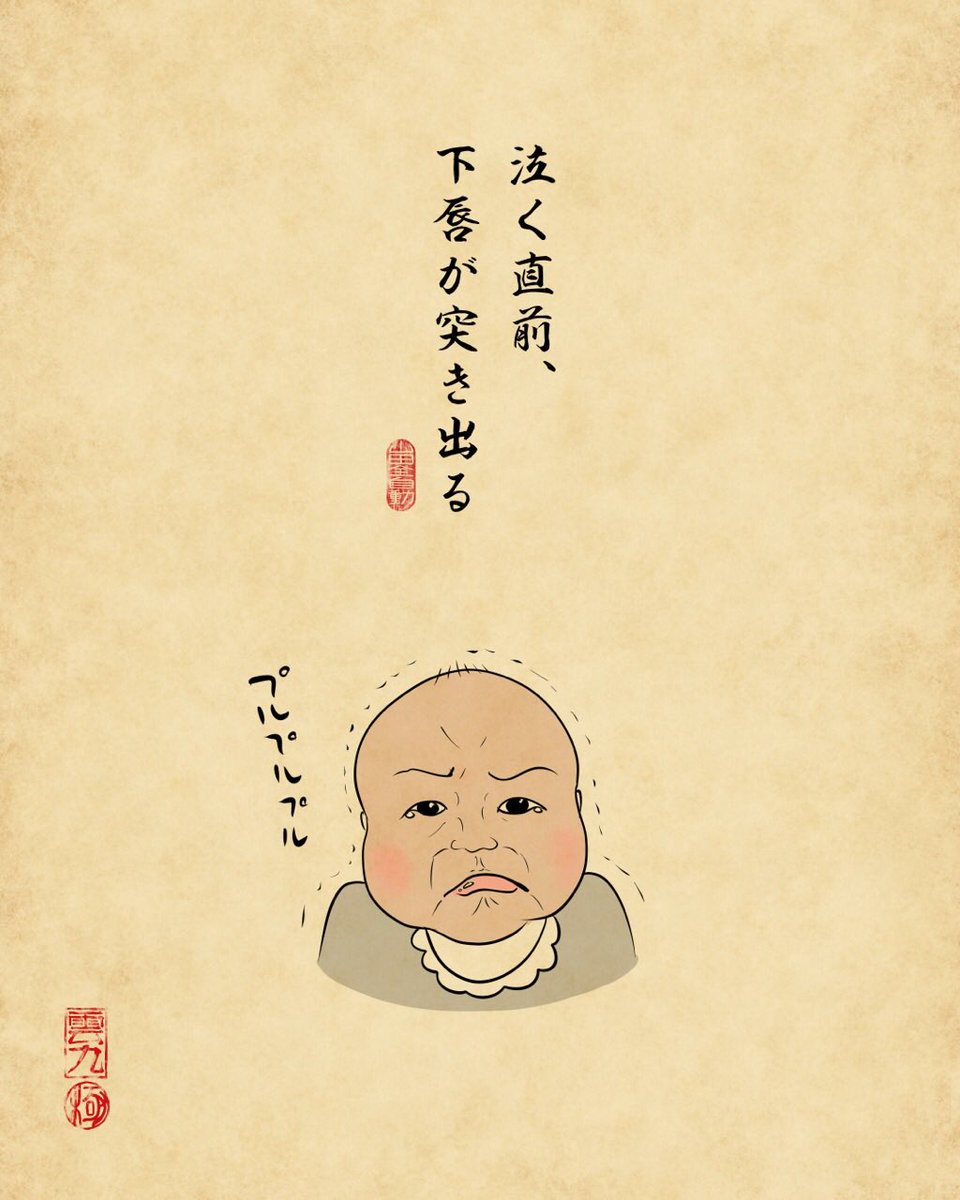 泣く直前、
下唇が突き出る
プルプルプル